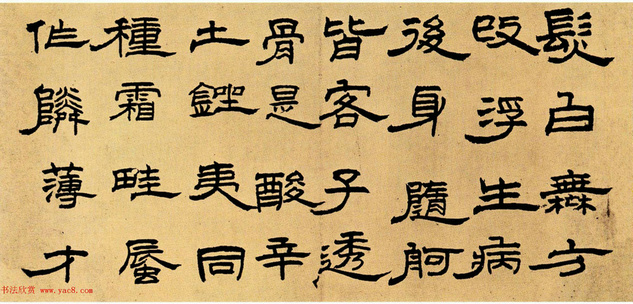 髮白無方
改浮生病
後身隨舸
皆客子透
骨是酸辛
土銼夷同
種霜畦蜃
作隣薄才
书法欣赏 www.yac8.com